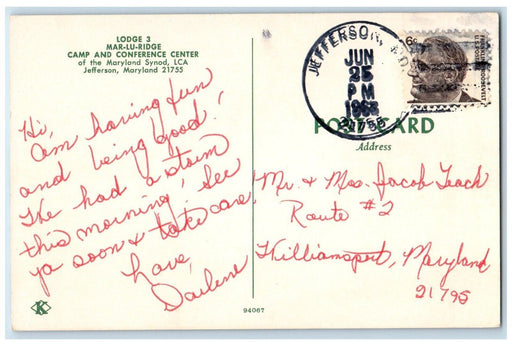 LODGE 3
MAR-LU-RIDGE
CAMP AND CONFERENCE CENTER
of the Maryland Synod, LCA
Jefferson, Maryland 21755
Hi,
Am having fun
and being good!
We had a storm
this morning! See
ya soon & take care.
Love,
Darlene
JEFFERSON, MD.
JUN
25
PM
1968
21755
6¢
POST CARD
Address
Mr. & Mrs. Jacob Teach
Route #2
Williamsport, Maryland
21795
K
94067